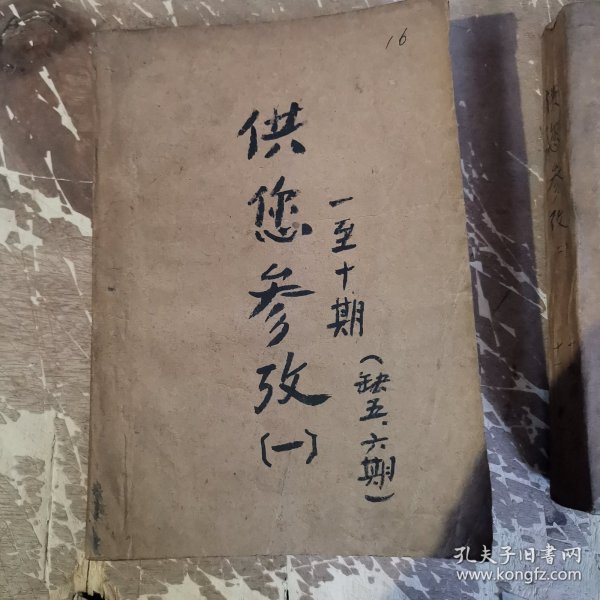 16
供您参攷
(一)
一至十期
(缺五、六期)
供您参攷
孔夫子旧书网
www.kongfz.com